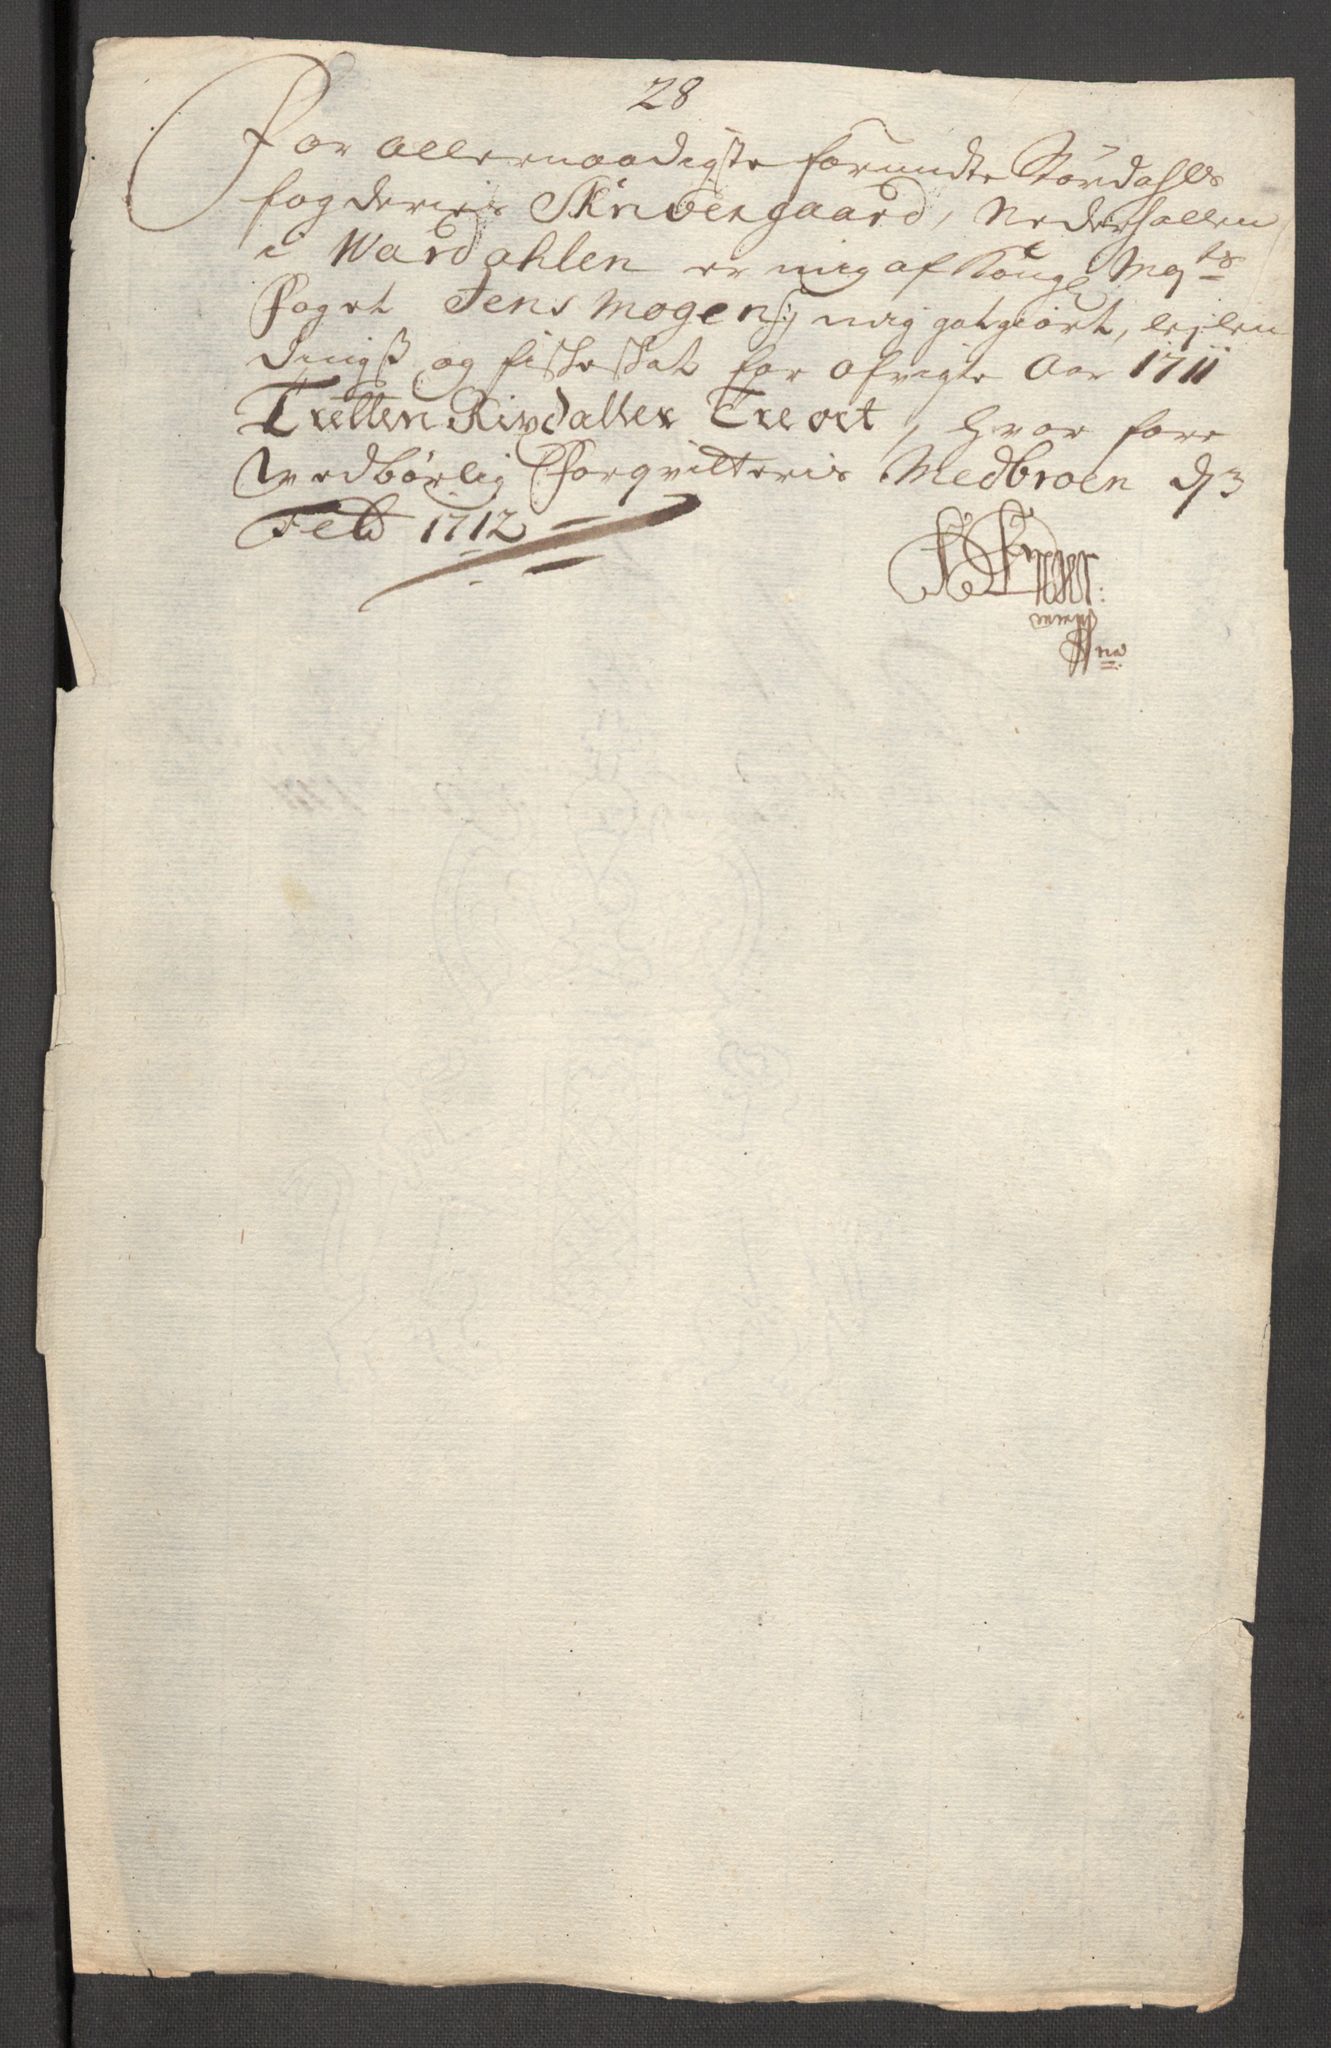 28
For allernaadigste forundte Størdahls
fogderies Skrivergaard, Nederhallen
i Wardahlen er mig af Kongl Mayts
Foget Jens Mogens: mig gotgiort, leilen
dings og fiskeskat for afvigte Aar 1711
Tretten Rixdaller Tre ort, hvor fore
vedbørlig Forqvitteris Medbroen d 3
Feb 1712